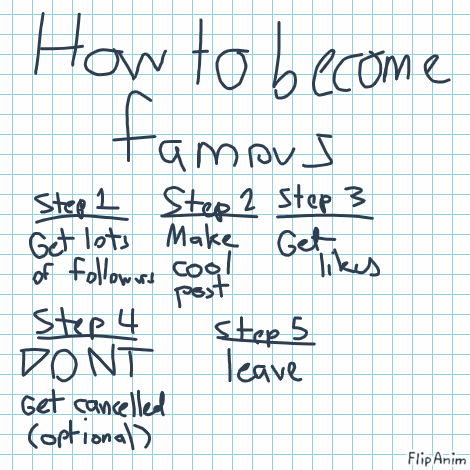 How to become
famous
Step 1
Get lots
of followers
Step 2
Make
cool
post
Step 3
Get
likes
Step 4
DONT
Get cancelled
(optional)
Step 5
leave
FlipAnim